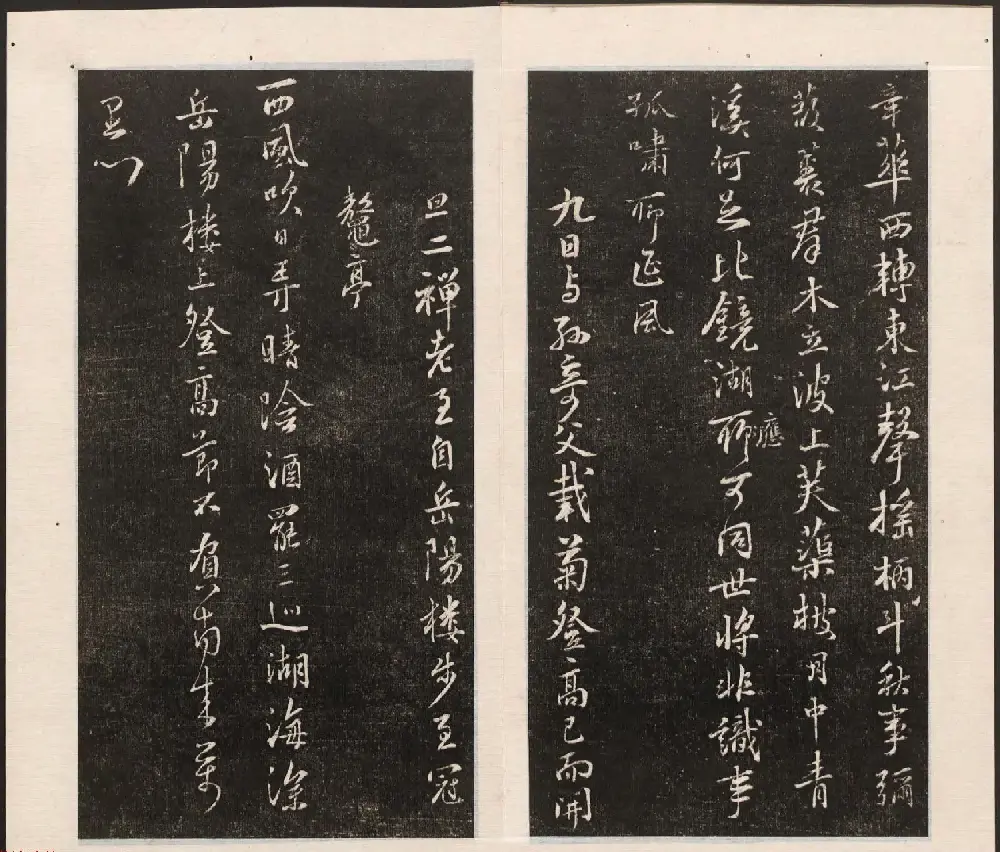 章華西轉東江聲搖柄斗秋事彌
群木立波上芙蕖披月中青
溪何足比鏡湖聊應可同世將非識事
孤嘯聊延風
九日与孫奇父栽菊登高已而開
旦二禪老至自岳陽楼步至冠
鼇亭
西風吹日弄晴陰酒罷三巡湖海深
岳陽楼上登高節不負南來萬
里心